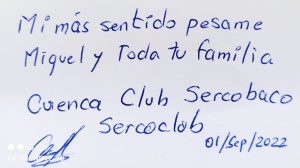 Mi más sentido pesame
Miguel y Toda tu familia
Cuenca Club Sercobaco
Sercoclub
01/Sep/2022